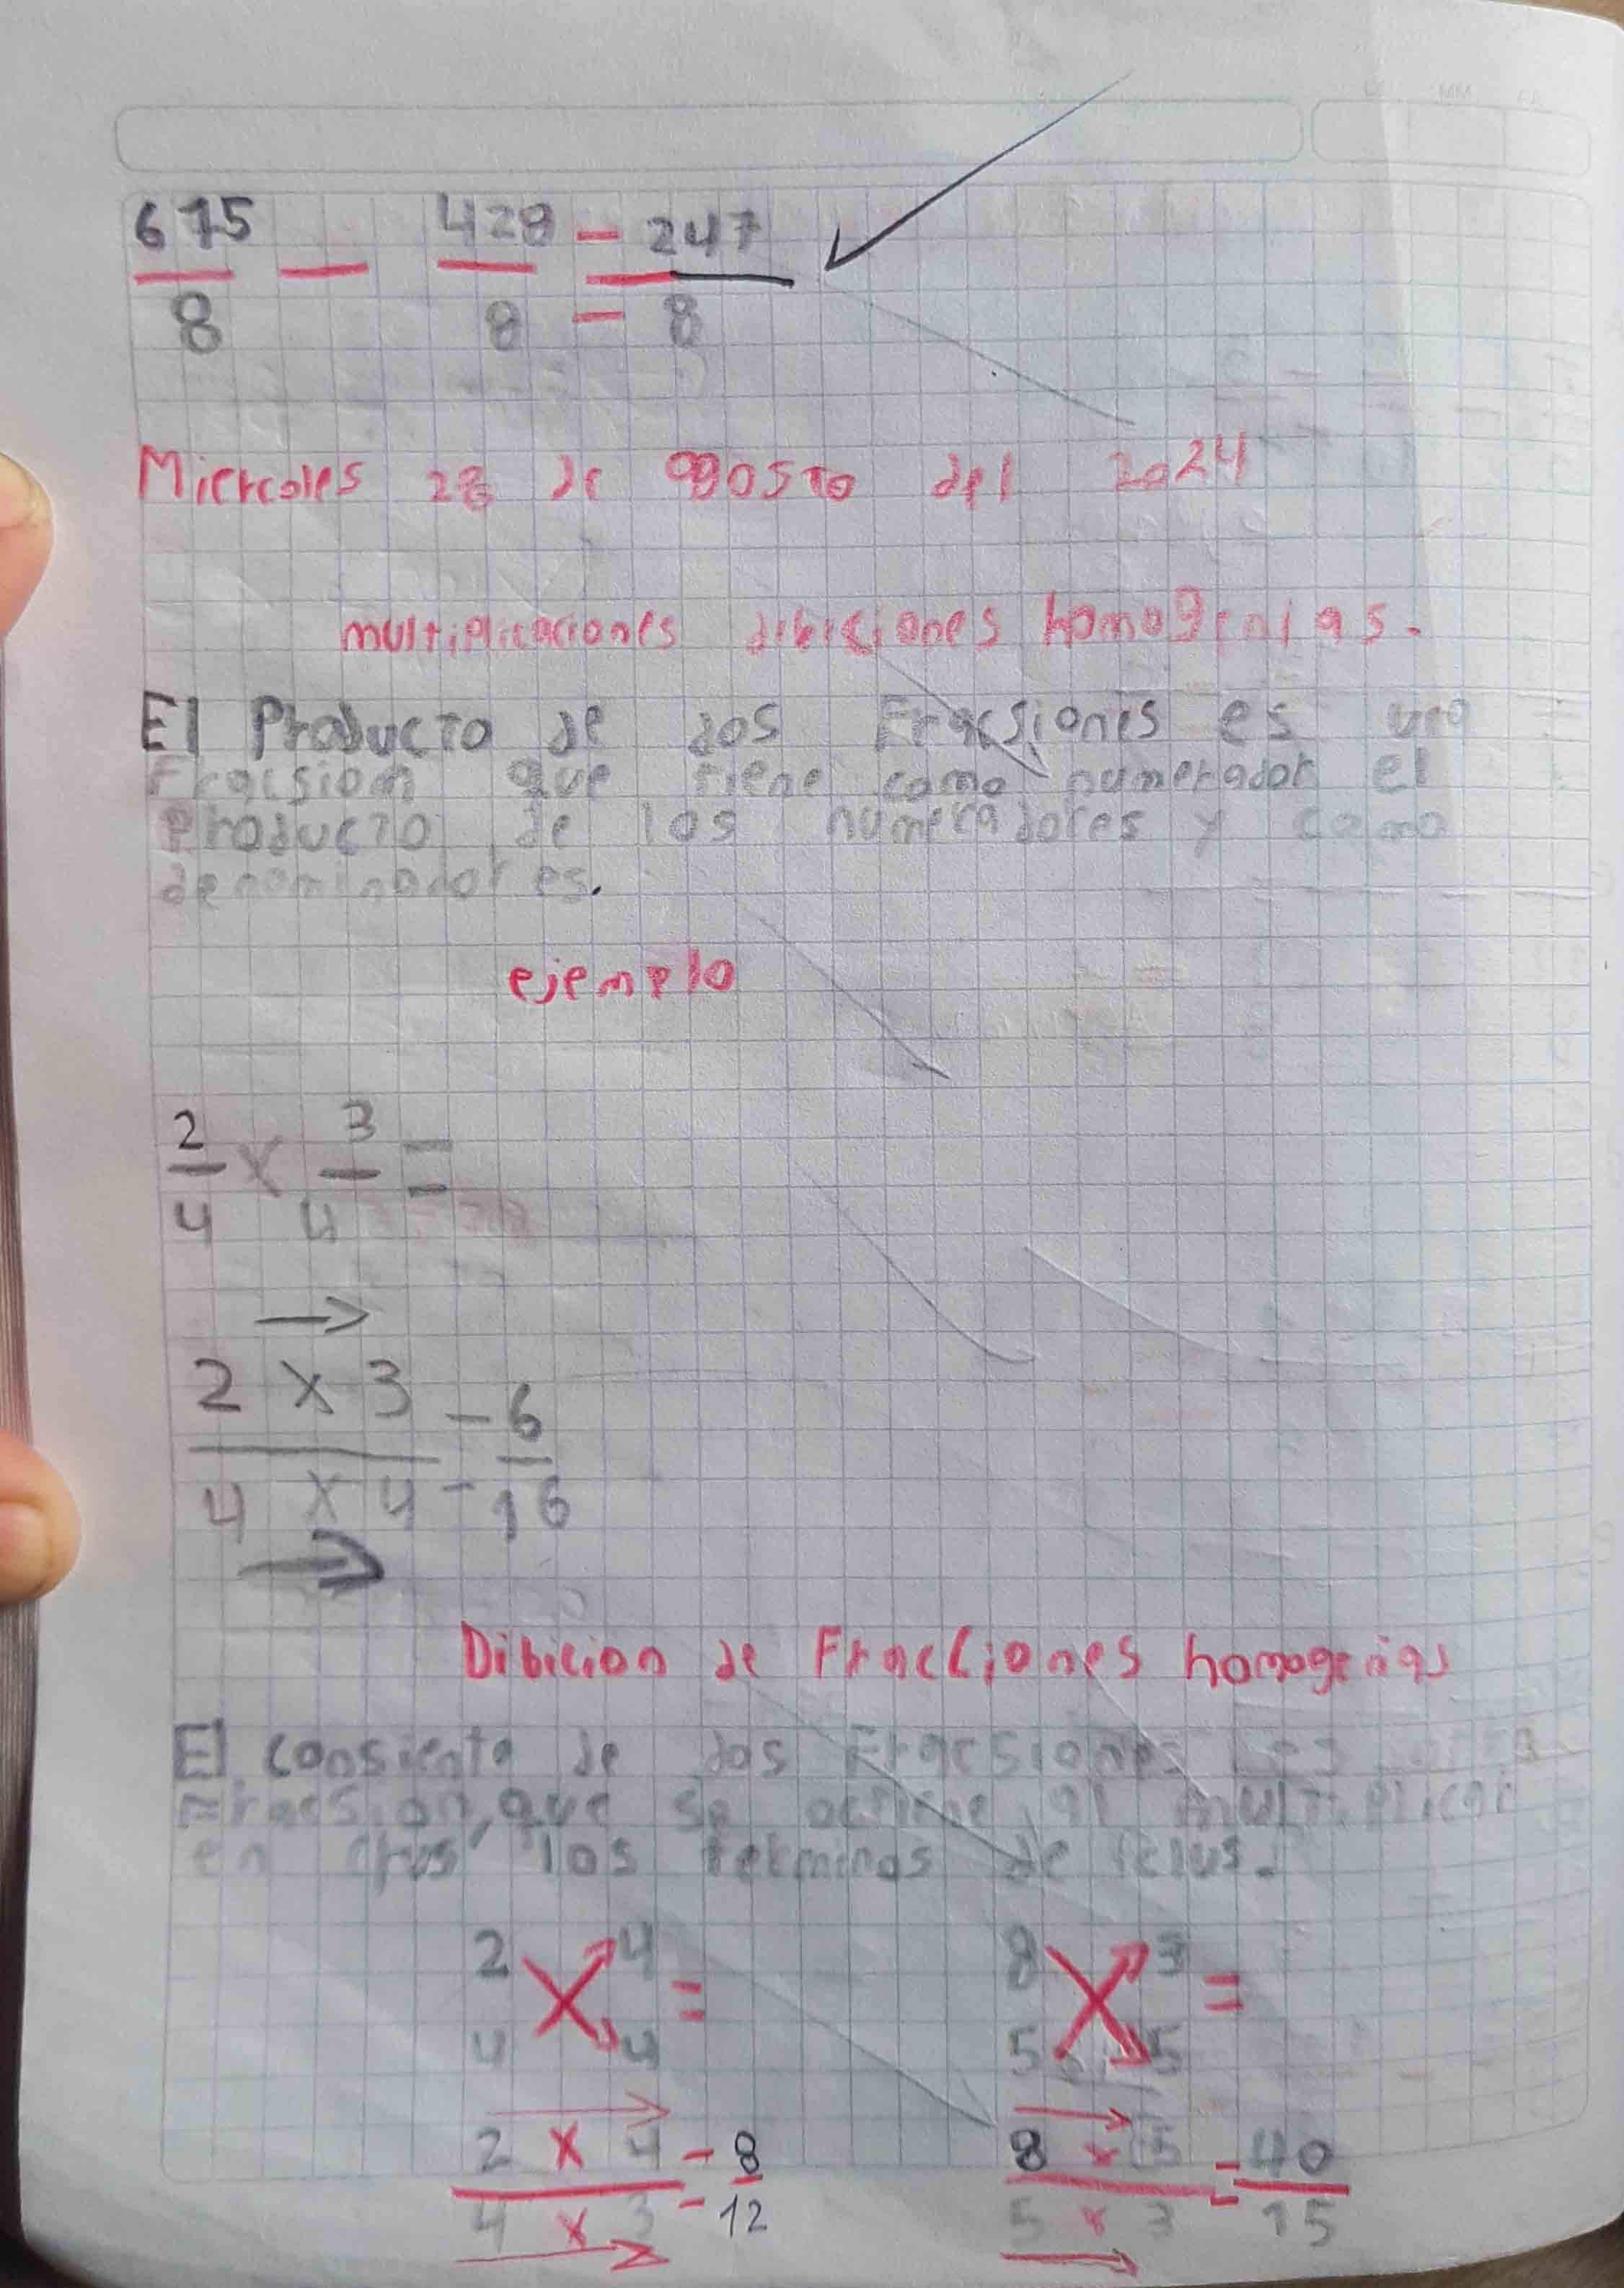 675 — 428 = 247
8 8 8
Miercoles 28 de agosto del 2024
multiplicaciones dibiciones homogenias.
El Producto de dos Fracsiones es una
Fracsion que tiene como numerador el
Producto de los numeradores y como
denominadores.
ejemplo
2/4 x 3/4 =
2 x 3 = 6
4 x 4 = 16
Dibicion de Fracciones homogenias
El consiente de dos Fracsiones es
Fracsion, que se al multiplicar
en crus los terminos de
2 4 = 8 3 =
4 4 5 5
2 x 4 = 8 8 x 5 = 40
4 x 3 = 12 5 x 3 = 15